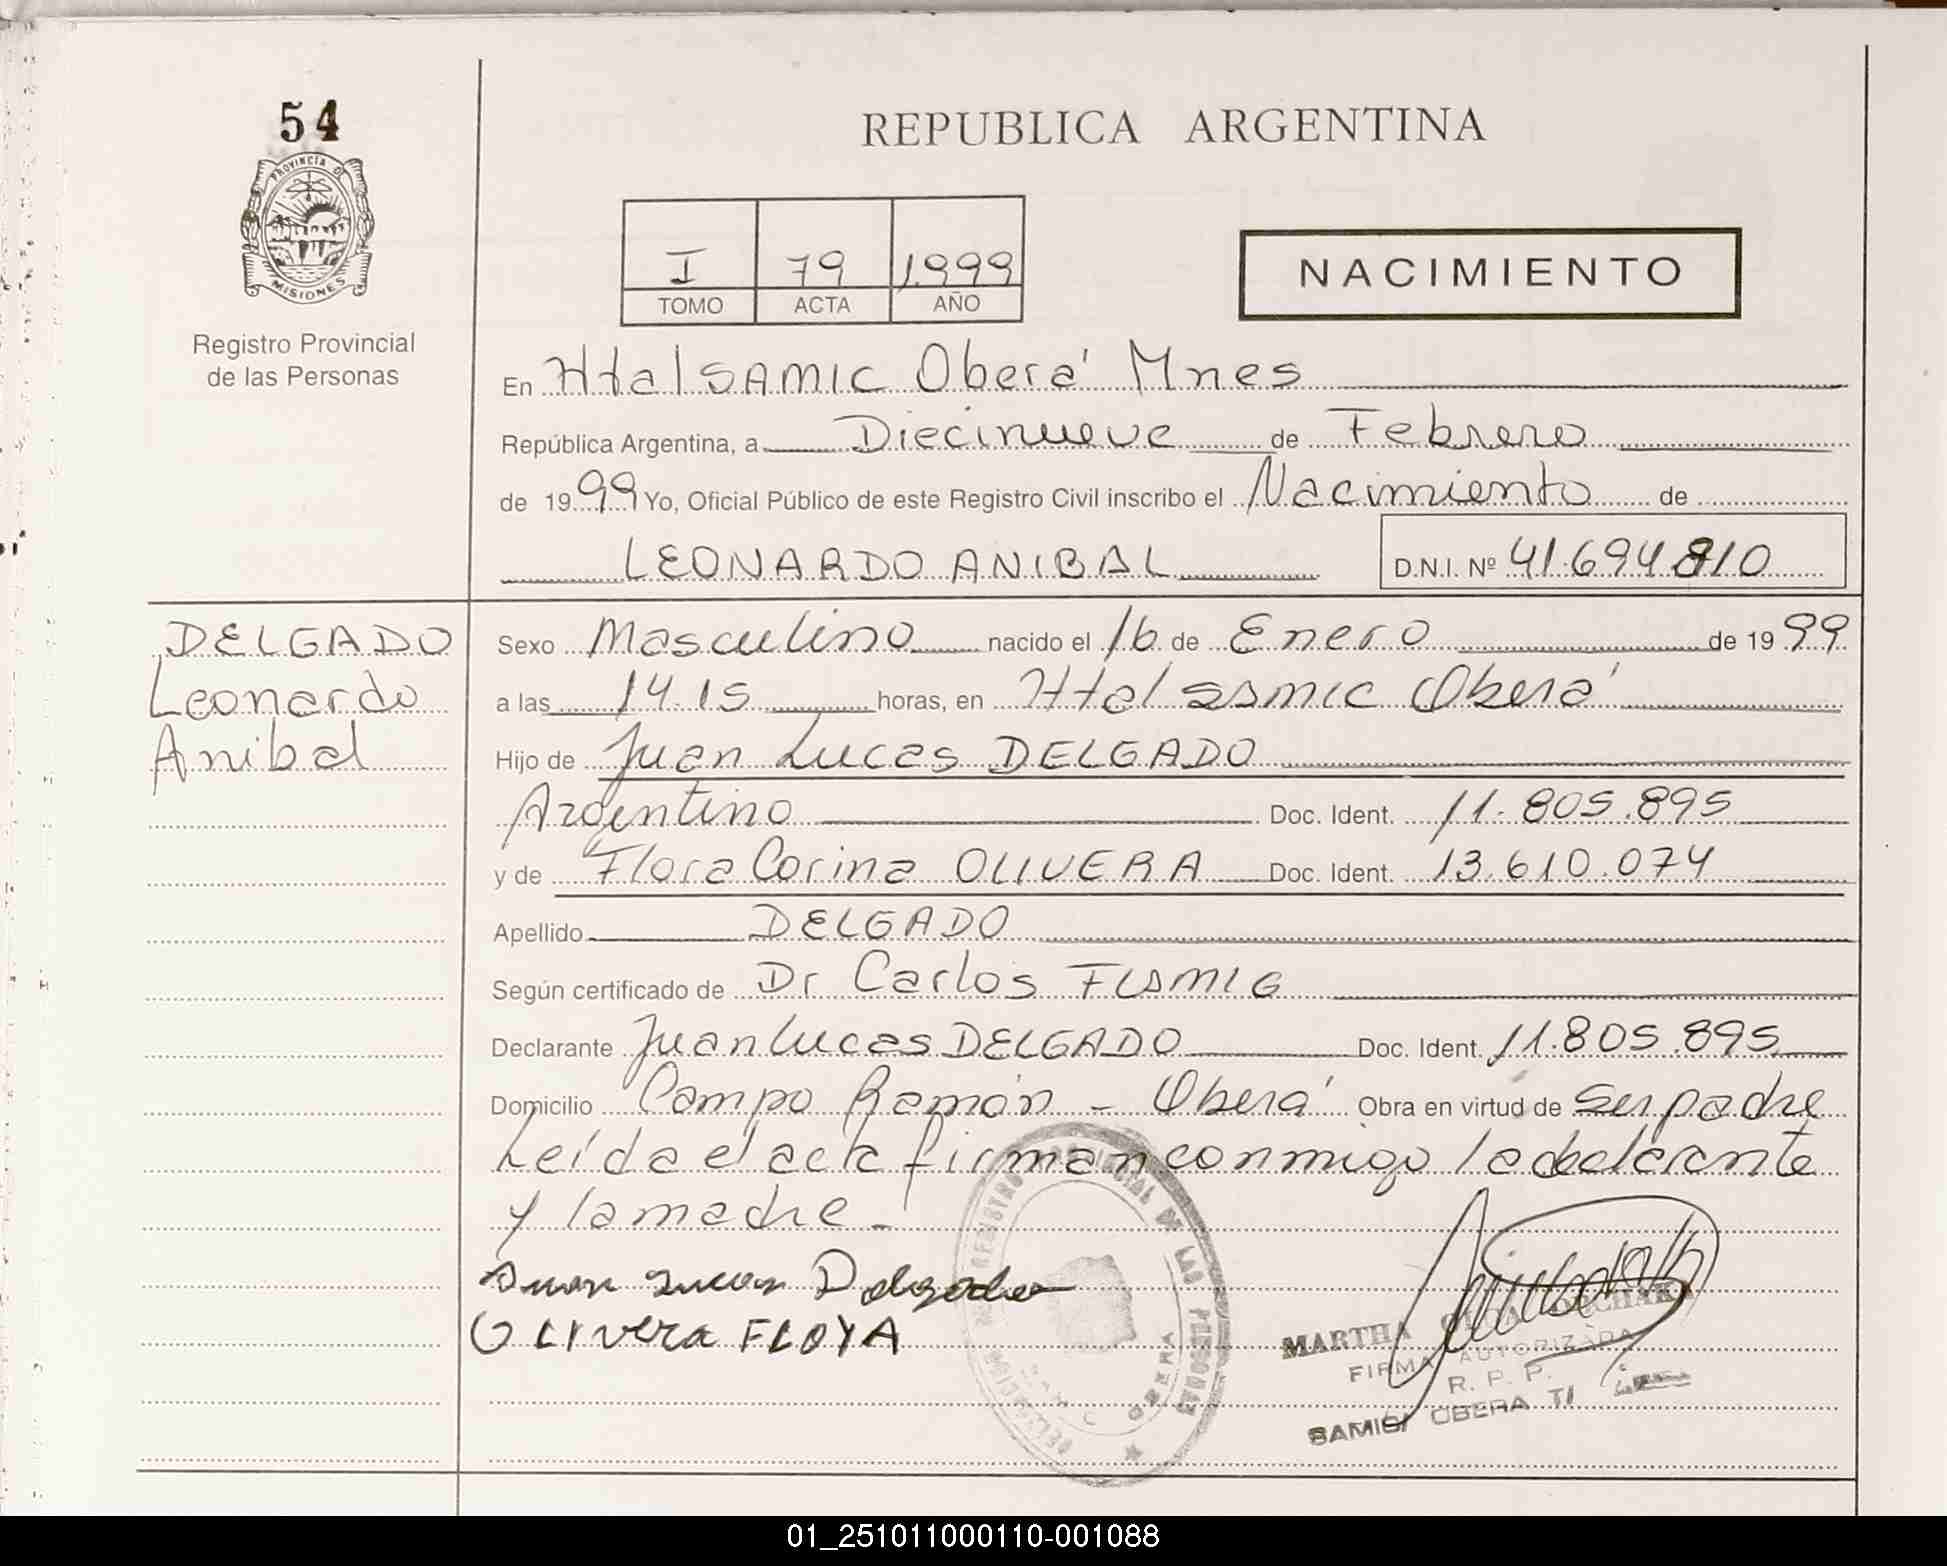 54
PROVINCIA DE
MISIONES
Registro Provincial
de las Personas
REPUBLICA ARGENTINA
I 79 1.999
TOMO ACTA AÑO
NACIMIENTO
En Htal SAMIC Oberá Mnes
República Argentina, a Diecinueve de Febrero
de 1999 Yo, Oficial Público de este Registro Civil inscribo el Nacimiento de
LEONARDO ANIBAL D.N.I. Nº 41.694.810
DELGADO
Leonardo
Anibal
Sexo Masculino nacido el 16 de Enero de 1999
a las 14.15 horas, en Htal Samic Oberá
Hijo de Juan Lucas DELGADO
Argentino Doc. Ident. 11.805.895
y de Flora Corina OLIVERA Doc. Ident. 13.610.074
Apellido DELGADO
Según certificado de Dr Carlos
Declarante Juan Lucas DELGADO Doc. Ident. 11.805.895
Domicilio Campo Ramón - Oberá Obra en virtud de ser padre
Leída el acta firman conmigo la declarante
y la madre -
Juan Lucas Delgado
OLIVera FLOYA
REGISTRO DE LAS PERSONAS
MARTHA
FIRMA AUTORIZADA
R. P. P.
SAMIC OBERA
01_251011000110-001088